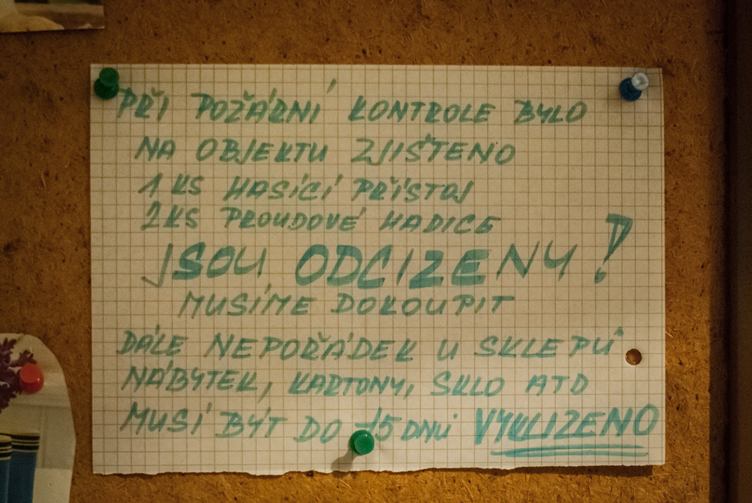 PŘI POŽÁRNÍ KONTROLE BYLO
NA OBJEKTU ZJIŠTENO
1 KS HASÍCÍ PŘÍSTOJ
2KS PROUDOVÉ HADICE
JSOU ODCIZENY!
MUSÍME DOKOUPIT
DÁLE NEPOŘÁDEK U SKLEPŮ
NÁBYTEK, KARTONY, SKLO ATD
MUSÍ BÝT DO 15 DNŮ VYKLIZENO